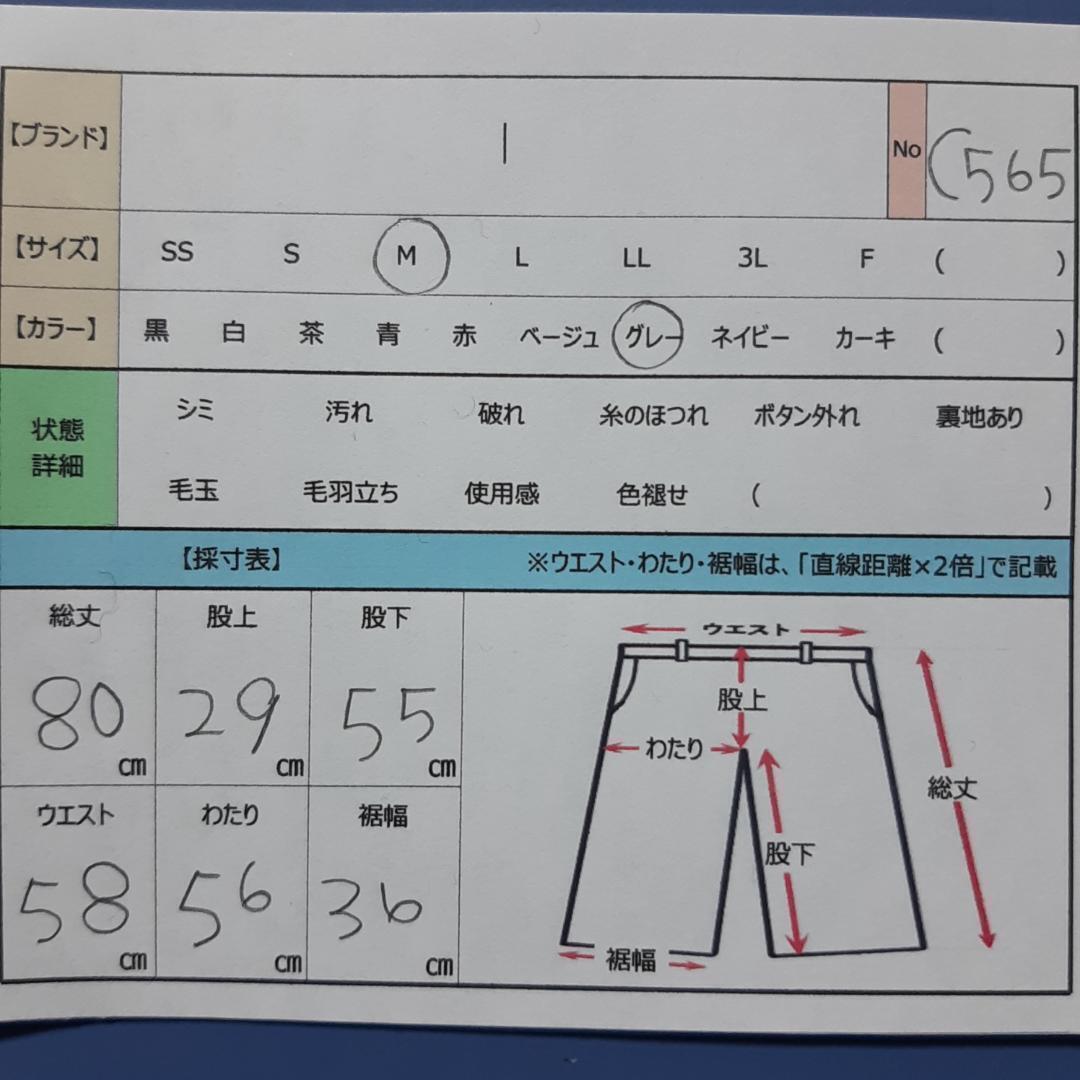 【ブランド】 | No (565
【サイズ】 SS S M L LL 3L F ( )
【カラー】 黒 白 茶 青 赤 ベージュ グレー ネイビー カーキ ( )
状態
詳細
シミ 汚れ 破れ 糸のほつれ ボタン外れ 裏地あり
毛玉 毛羽立ち 使用感 色褪せ ( )
【採寸表】 ※ウエスト・わたり・裾幅は、「直線距離×2倍」で記載
総丈 股上 股下
80cm 29cm 55cm
ウエスト わたり 裾幅
58cm 56cm 36cm
ウエスト
股上
わたり
総丈
股下
裾幅